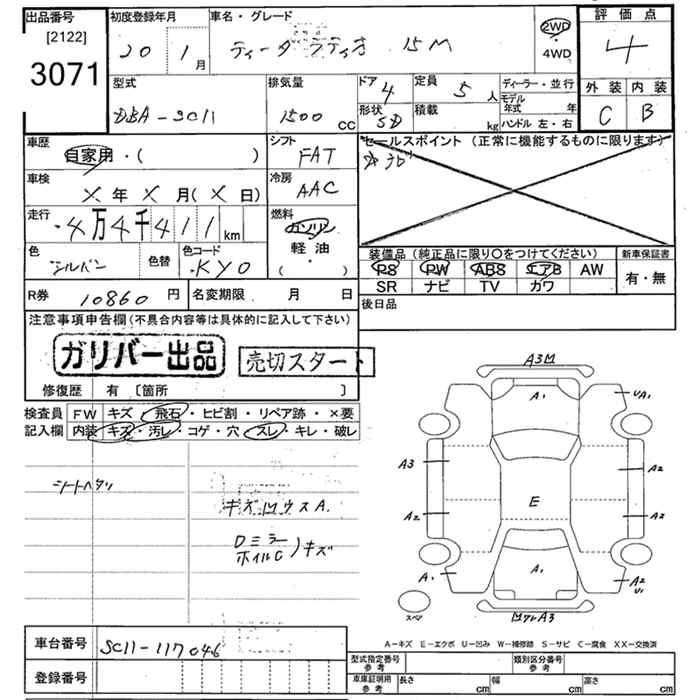 出品番号
[2122]
3071
初度登録年月
20 1月
車名・グレード
ティーダ ラティオ 15M
2WD
4WD
評価点
4
外装 内装
C B
型式
DBA-SC11
排気量
1500 CC
ドア 4
形状 SD
定員 5人
積載 kg
ディーラー・並行
モデル年式 年
ハンドル 左・右
車歴
自家用・( )
シフト
FAT
セールスポイント (正常に機能するものに限ります)
車検
X年X月(X日)
冷房
AAC
走行
4万4千411km
燃料
ガソリン
軽・油
( ・ )
色
シルバー
色替
色コード
KY0
装備品 (純正品に限り〇をつけてください)
PS PW ABS エアB AW
SR ナビ TV カワ
新車保証書
有・無
R券 10860円
名変期限 月 日
後日品
注意事項申告欄 (不具合内容等は具体的に記入して下さい)
ガリバー出品
売切スタート
修復歴 有 〔箇所 〕
検査員記入欄
FW キズ・飛石・ヒビ割・リペア跡・×要
内装 キズ・汚レ・コゲ・穴・スレ・キレ・破レ
シートヘタリ
キズ凹ウスA.
Dミラー
ホイルC )キズ
A3凹
A1
UA1
A3
A2
A2
E
A2
A1
A1
A2
U1
スペア
凹ワレA3
A－キズ E－エクボ U－凹み W－補修跡 S－サビ C－腐食 XX－交換済
車台番号 SC11-117046
登録番号
型式指定番号 参考
類別区分番号 参考
車庫証明用 参考
長さ cm 幅 cm 高さ cm